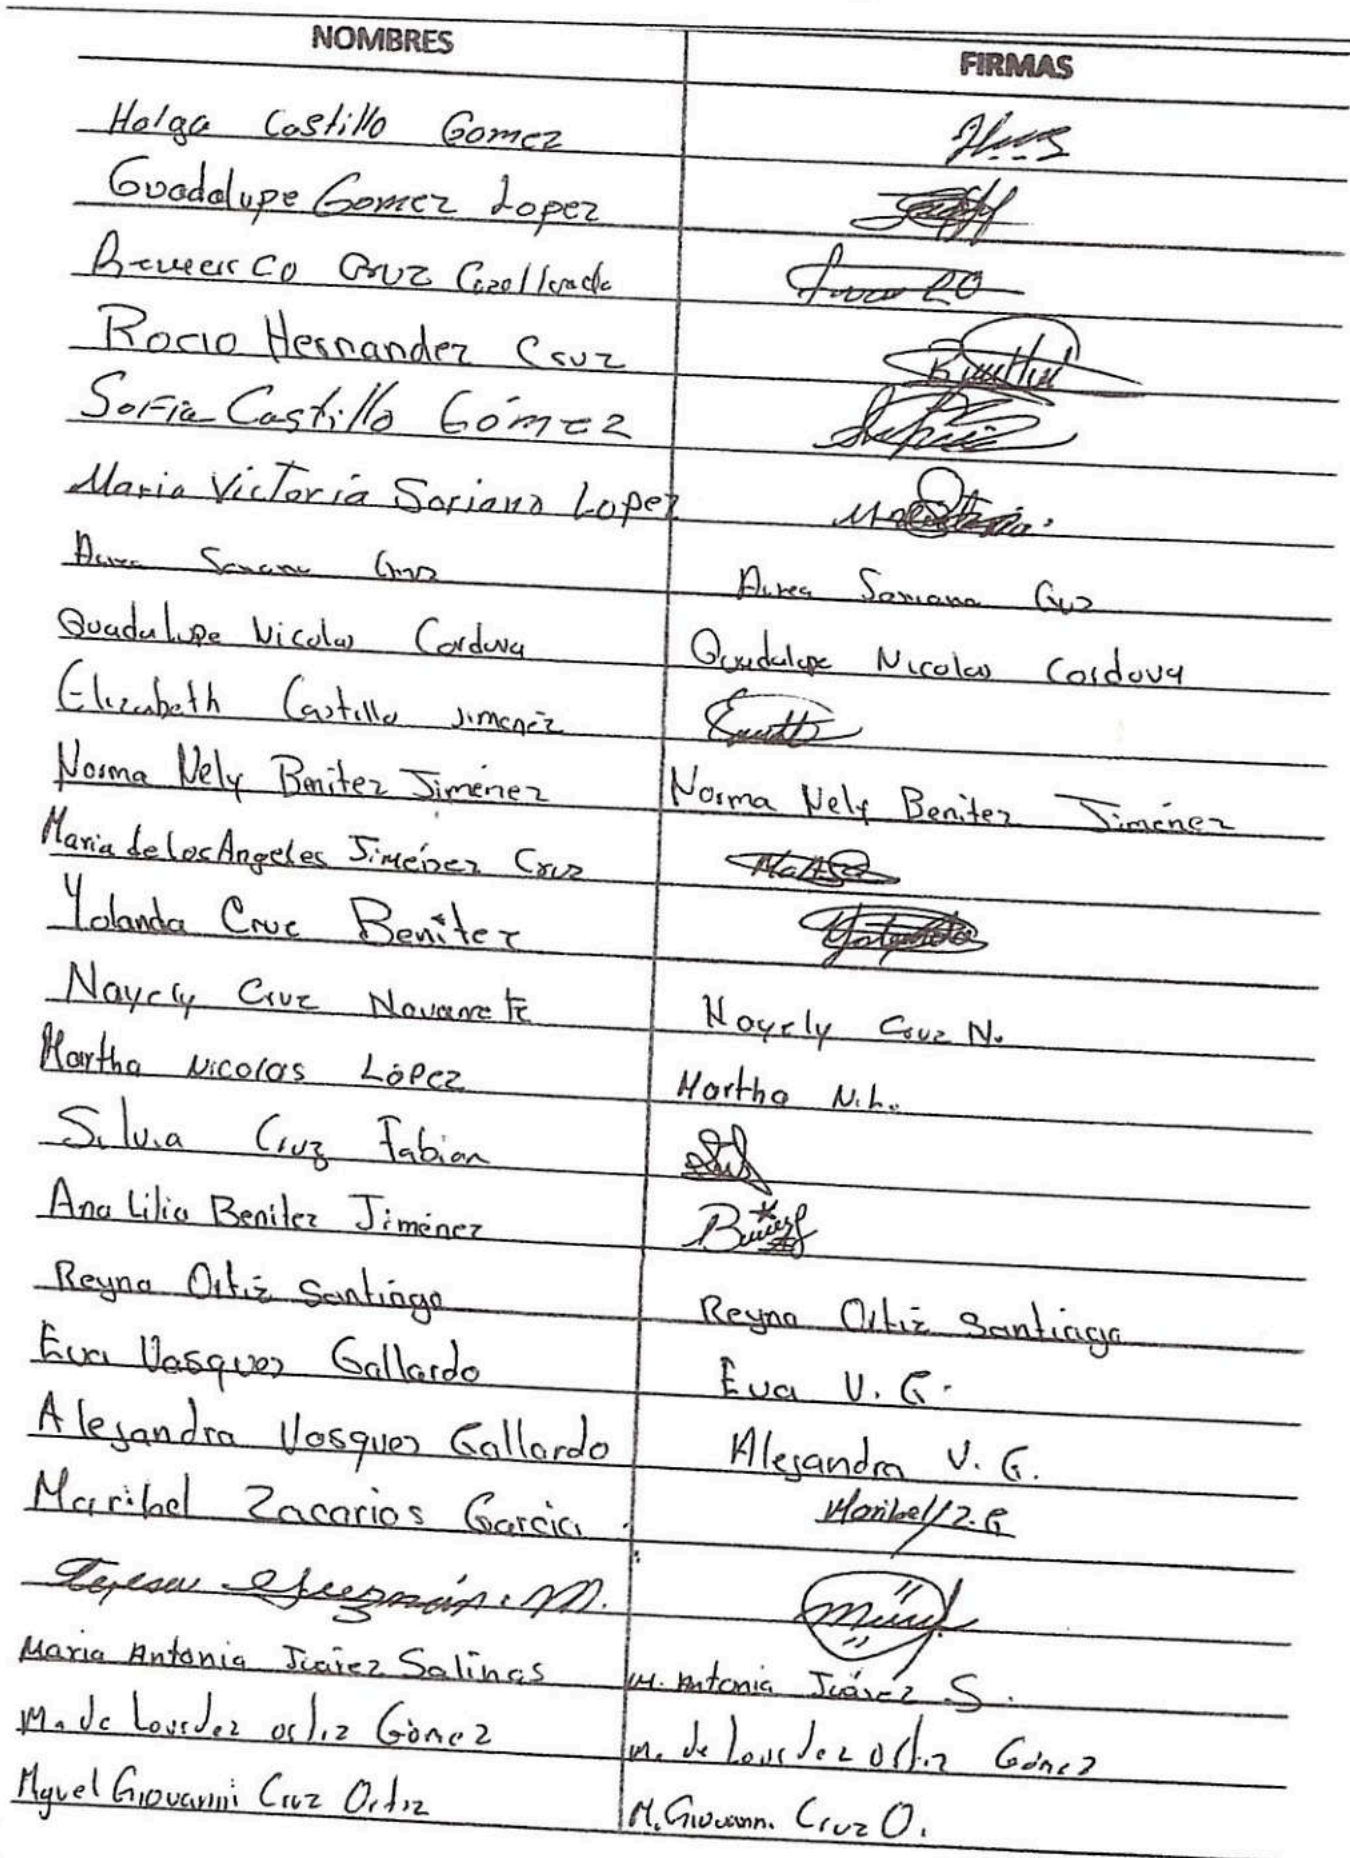 NOMBRES FIRMAS
Holga Castillo Gomez
Guadalupe Gomez Lopez
Cruz
Rocio Hernandez Cruz
Sofia Castillo Gómez
Maria Victoria Soriano Lopez
Aurea Soriano Cruz Aurea Soriano Cruz
Guadalupe Nicolas Cordova Guadalupe Nicolas Cordova
Elizabeth Castillo Jimenez
Norma Nely Benitez Jiménez Norma Nely Benitez Jiménez
Maria de los Angeles Jiménez Cruz
Yolanda Cruz Benitez
Nayely Cruz Navarrete Nayely Cruz N.
Martha Nicolas López Martha N.L.
Silvia Cruz Fabian
Ana Lilia Benitez Jiménez
Reyna Ortiz Santiago Reyna Ortiz Santiago
Eva Vasquez Gallardo Eva V. G.
Alejandra Vasquez Gallardo Alejandra V. G.
Maribel Zacarias Garcia Maribel Z.G
Teresa Guzmán M.
Maria Antonia Juárez Salinas M. Antonia Juárez S.
M. de Lourdez ortiz Gómez M. de Lourdez Ortiz Gómez
Miguel Giovanni Cruz Ortiz M. Giovanni Cruz O.